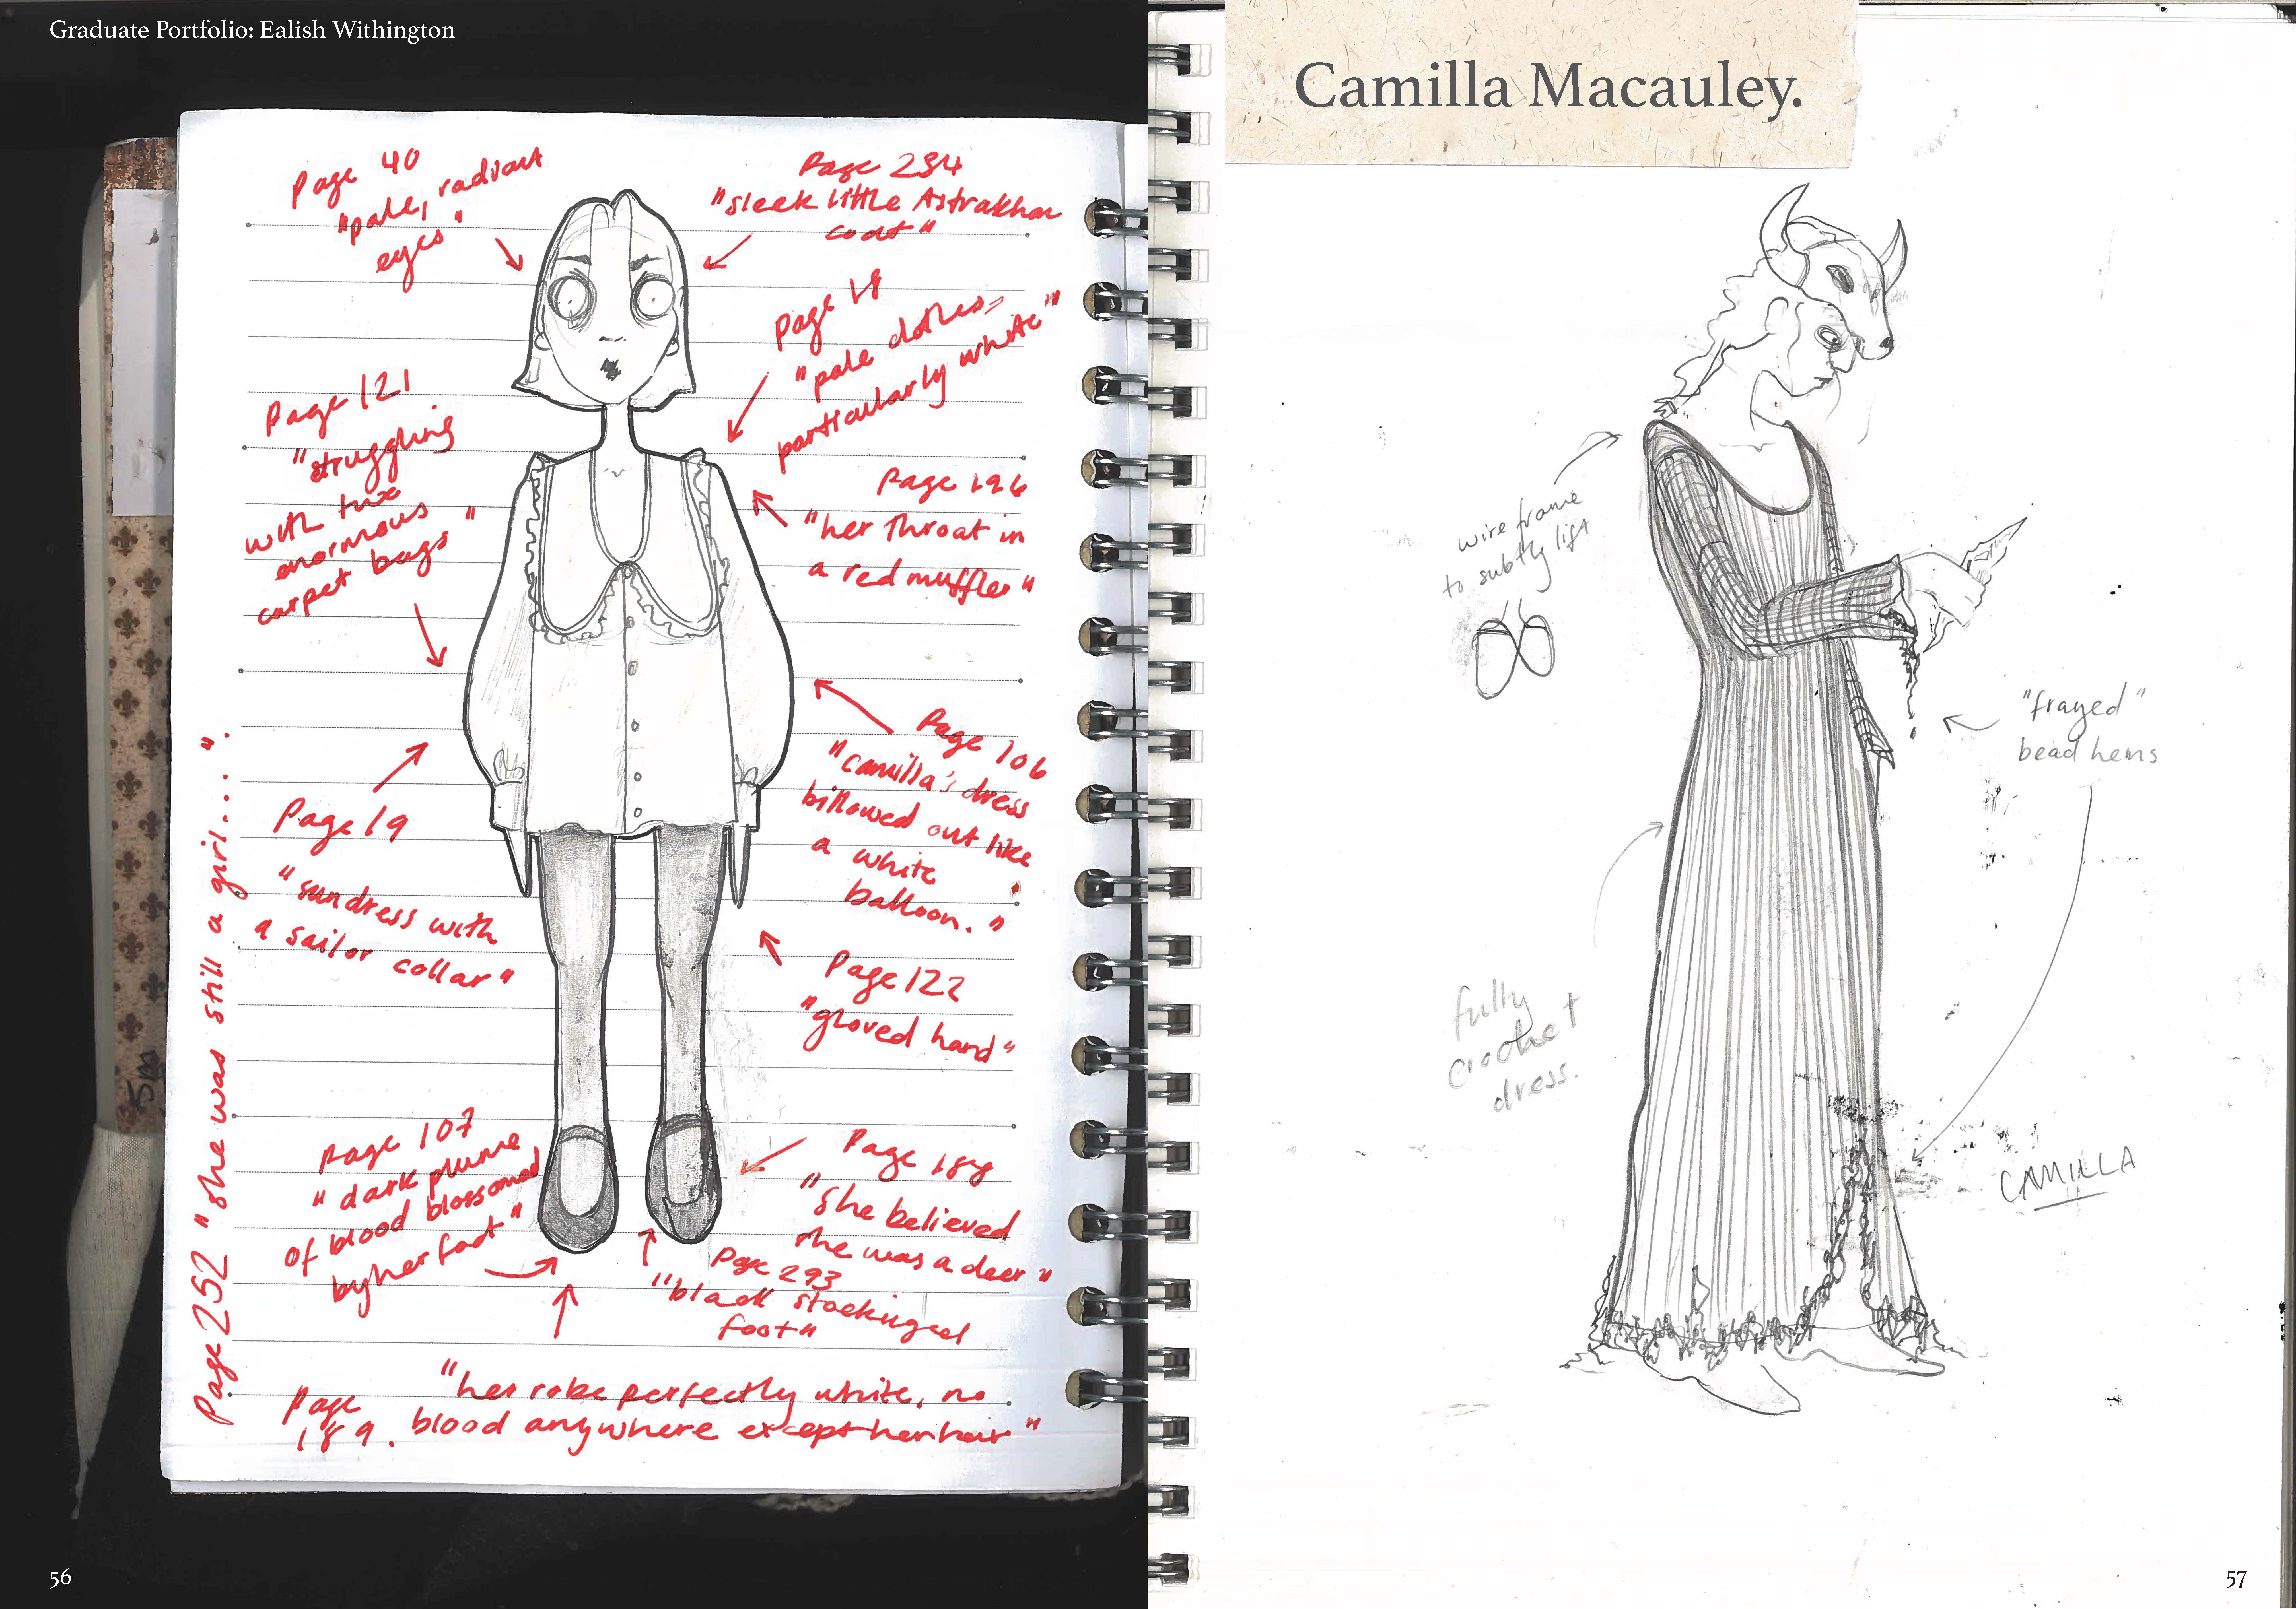 Graduate Portfolio: Ealish Withington
Page 40
"pale, radiant
eyes"
Page 234
"sleek little Astrakhan
coat"
Page 18
"pale clothes,
particularly white"
Page 121
"struggling
with two
enormous
carpet bags"
Page 196
"her throat in
a red muffler"
Page 19
"sundress with
a sailor collar"
Page 106
"Camilla's dress
billowed out like
a white
balloon."
Page 122
"gloved hand"
Page 107
"dark plume
of blood blossomed
by her foot"
Page 188
"she believed
she was a deer"
Page 293
"black stockinged
foot"
Page
189.
"her robe perfectly white, no
blood anywhere except her hair"
Page 252 "she was still a girl....".
56
Camilla Macauley.
wire frame
to subtly lift
"frayed"
bead hems
fully
crochet
dress.
CAMILLA
57